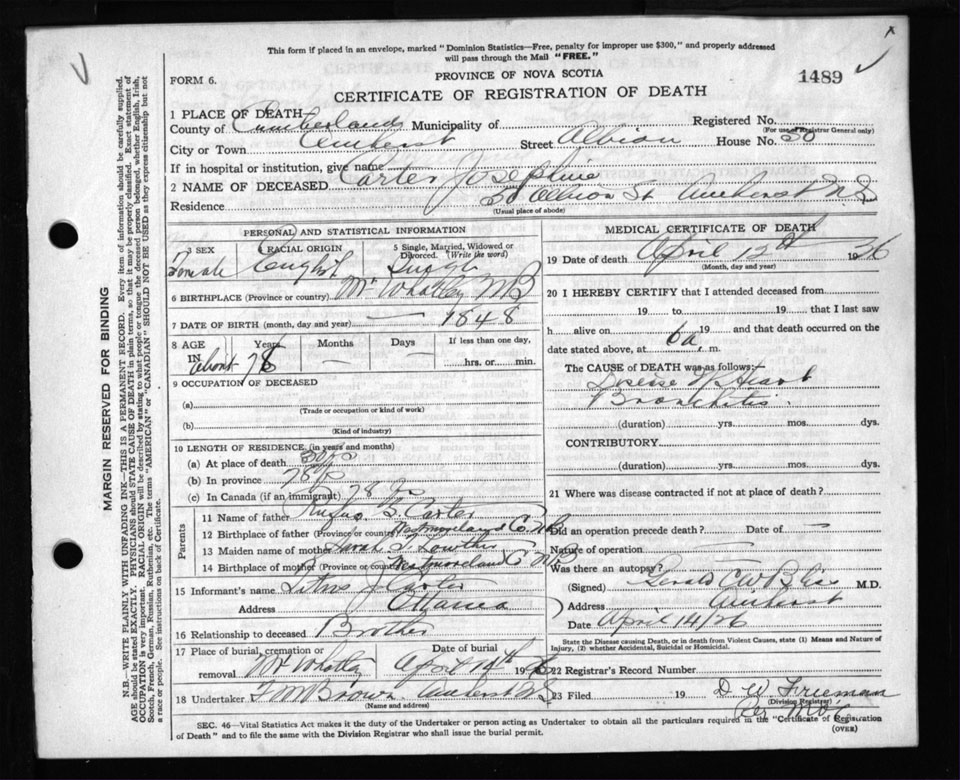 This form if placed in an envelope, marked "Dominion Statistics—Free, penalty for improper use $300," and properly addressed
will pass through the Mail "FREE."
FORM 6.
PROVINCE OF NOVA SCOTIA
1489
CERTIFICATE OF REGISTRATION OF DEATH
1 PLACE OF DEATH
County of Cumberland Municipality of Registered No.
(For use of Registrar General only)
City or Town Amherst Street Albion House No. 30
If in hospital or institution, give name
2 NAME OF DECEASED Carter Josephine
Residence 30 Albion St Amherst NS
(Usual place of abode)
PERSONAL AND STATISTICAL INFORMATION
3 SEX
Female
RACIAL ORIGIN
English
5 Single, Married, Widowed or Divorced. (Write the word)
Single
6 BIRTHPLACE (Province or country) Mt Whatley NB
7 DATE OF BIRTH (month, day and year) — 1848
8 AGE IN Years Months Days If less than one day,
About 78 — — hrs. or min.
9 OCCUPATION OF DECEASED
(a)
(Trade or occupation or kind of work)
(b)
(Kind of industry)
10 LENGTH OF RESIDENCE (in years and months)
(a) At place of death
(b) In province 78
(c) In Canada (if an immigrant) 78
Parents
11 Name of father Rufus Carter
12 Birthplace of father (Province or country) Westmoreland C. NB
13 Maiden name of mother Sarah
14 Birthplace of mother Westmoreland C NB
15 Informant's name Carter
Address Ottawa
16 Relationship to deceased Brother
17 Place of burial, cremation or
removal Mt Whatley April 14th 1926
18 Undertaker F M Brown Amherst NS
(Name and address)
MEDICAL CERTIFICATE OF DEATH
19 Date of death April 12th 1926
(Month, day and year)
20 I HEREBY CERTIFY that I attended deceased from
19 to 19 that I last saw
h alive on 19 and that death occurred on the
date stated above, at 6 a. m.
The CAUSE OF DEATH was as follows:
Disease of Heart
Bronchitis
(duration) yrs. mos. dys.
CONTRIBUTORY
(duration) yrs. mos. dys.
21 Where was disease contracted if not at place of death?
Did an operation precede death? Date of —
Nature of operation —
Was there an autopsy?
(Signed) Gerald C W Bliss M.D.
Address Amherst
Date April 14/26
State the Disease causing Death, or in death from Violent Causes, state (1) Means and Nature of
Injury, (2) whether Accidental, Suicidal or Homicidal.
22 Registrar's Record Number
23 Filed 19 D. W. Freeman
(Division Registrar)
Per
SEC. 46—Vital Statistics Act makes it the duty of the Undertaker or person acting as Undertaker to obtain all the particulars required in the "Certificate of Registration
of Death" and to file the same with the Division Registrar who shall issue the burial permit.
(OVER)
MARGIN RESERVED FOR BINDING
N.B.—WRITE PLAINLY WITH UNFADING INK—THIS IS A PERMANENT RECORD. Every item of information should be carefully supplied.
AGE should be stated EXACTLY. PHYSICIANS should STATE CAUSE OF DEATH in plain terms, so that it may be properly classified. Exact statement of
OCCUPATION is very important. RACIAL ORIGIN will be described by stating to what people or tongue the deceased person belonged, whether English, Irish,
Scotch, French, German, Russian, Ruthenian, etc. The terms "AMERICAN" or "CANADIAN" SHOULD NOT BE USED as they express citizenship but not
a race or people. See instructions on back of Certificate.